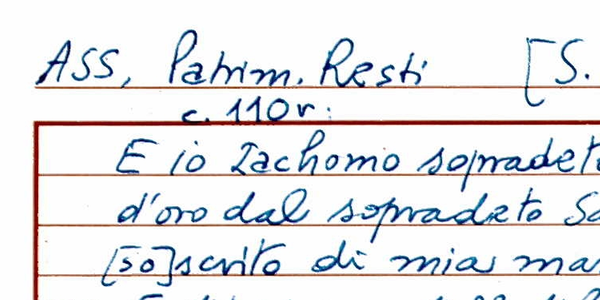 ASS, Patrim. Resti [S.
c. 110r.
E io Iachomo sopradeto
d'oro dal sopradeto
[so]scrito di mia